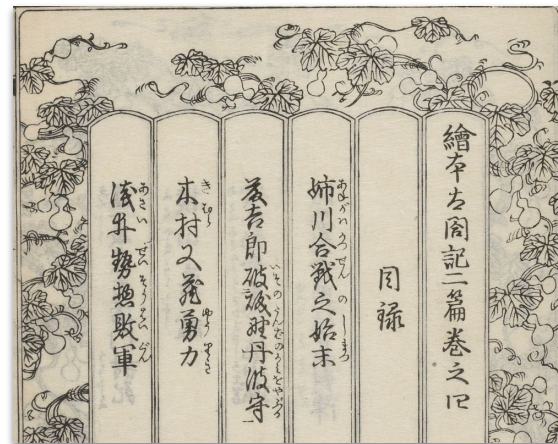 繪本太閤記二篇巻之四
目録
姉川合戦之始末
藤吉郎破磯野丹波守
木村又蔵勇力
浅井勢摠敗軍